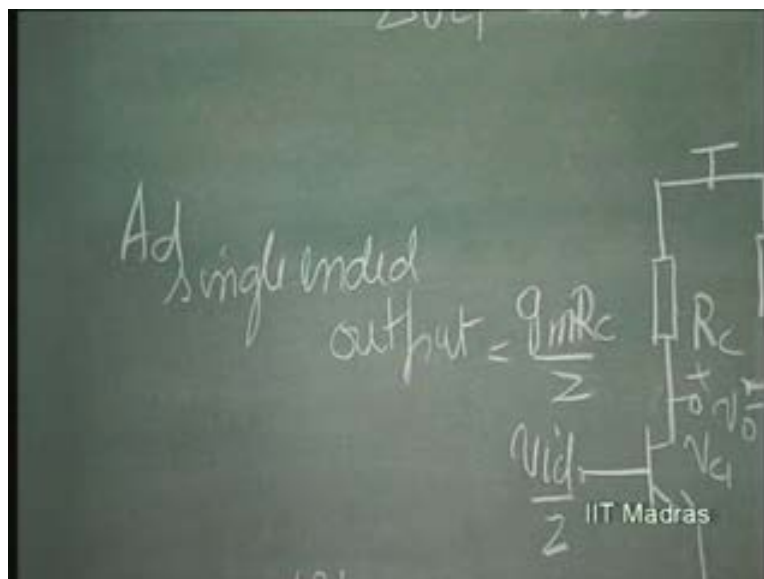 Ad single ended
output = gmRc/2
Rc
+
Vo
-
Vid/2
Vc1
IIT Madras